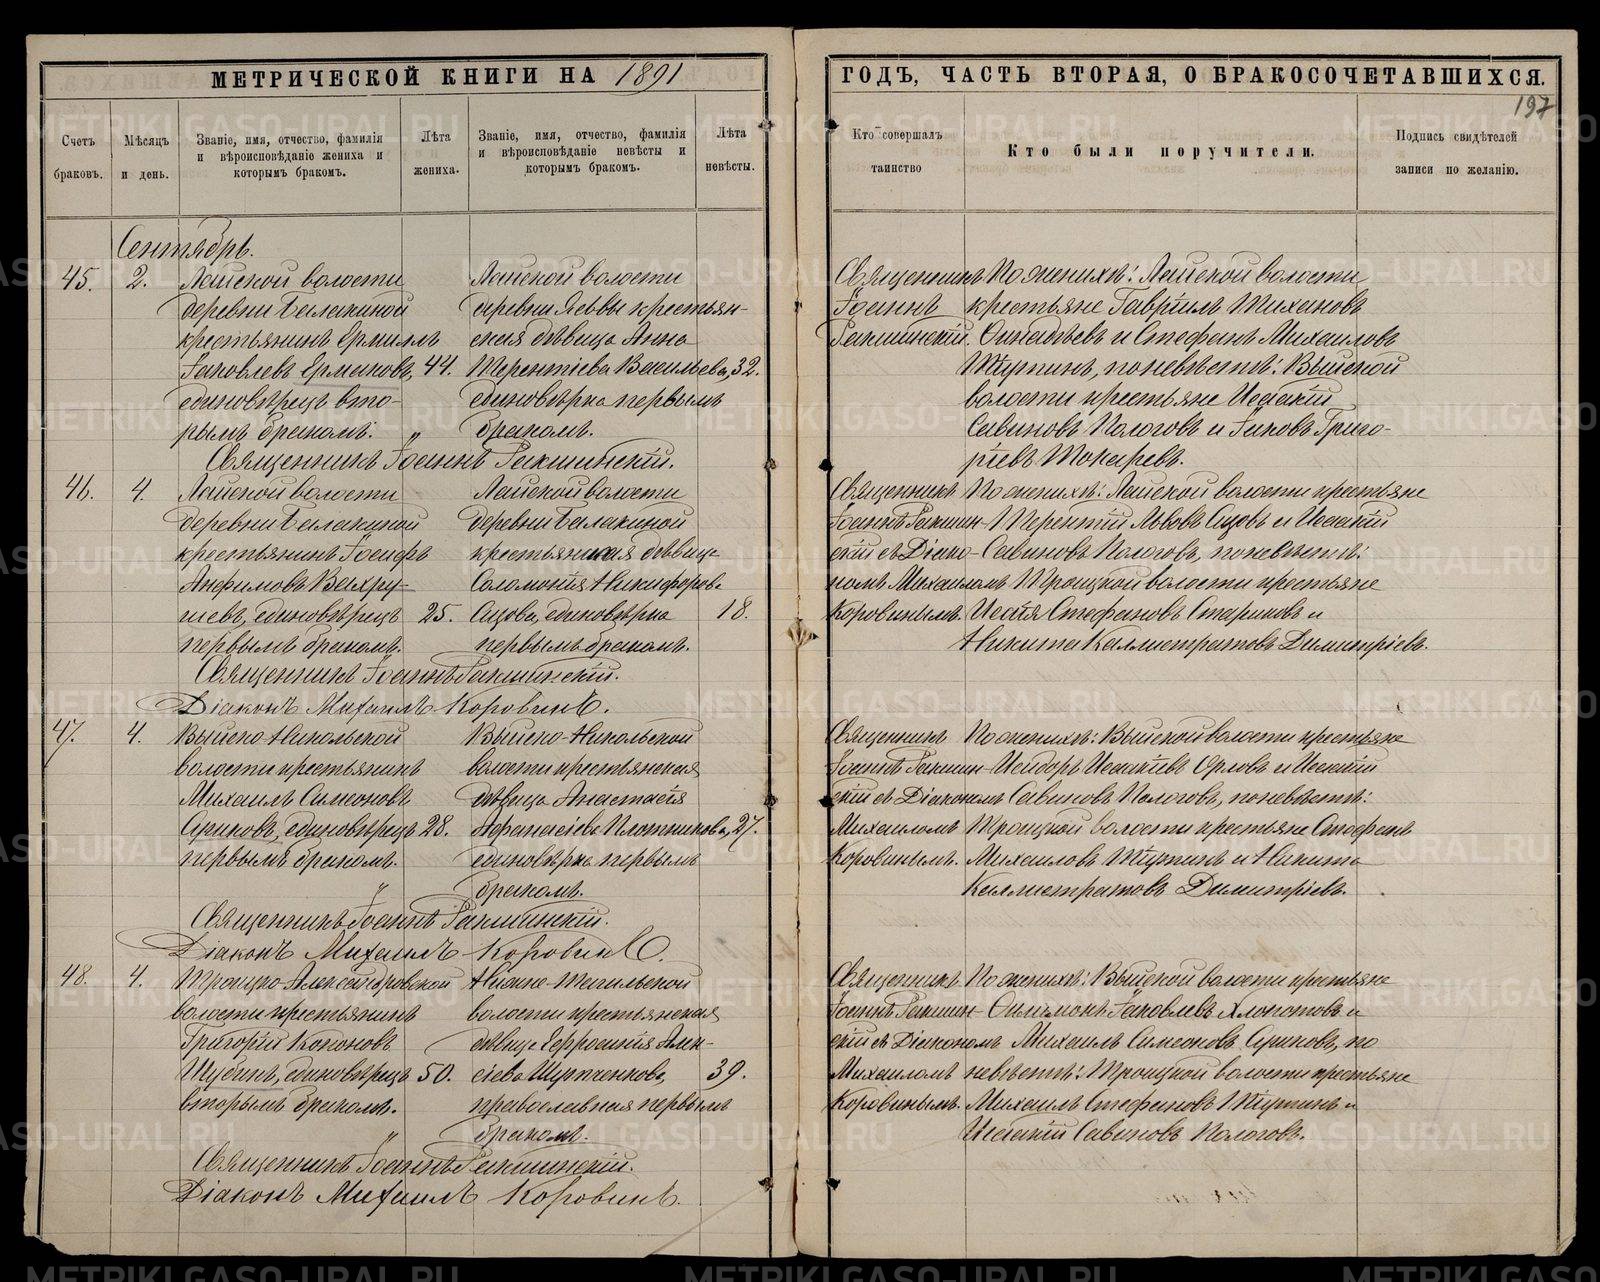 МЕТРИЧЕСКОЙ КНИГИ НА 1891
ГОДЪ, ЧАСТЬ ВТОРАЯ, О БРАКОСОЧЕТАВШИХСЯ.
197
Счетъ браковъ.
Мѣсяцъ и день.
Званіе, имя, отчество, фамилія и вѣроисповѣданіе жениха и которымъ бракомъ.
Лѣта жениха.
Званіе, имя, отчество, фамилія и вѣроисповѣданіе невѣсты и которымъ бракомъ.
Лѣта невѣсты.
Кто совершалъ таинство
Кто были поручители.
Подпись свидѣтелей записи по желанію.
Сентябрь.
45.
2.
Лайской волости
деревни Балакиной
крестьянинъ Ермилъ
Іаковлевъ Ермаковъ, 44.
единовѣрецъ вто-
рымъ бракомъ. „
Лайской волости
деревни Левы крестьян-
ская дѣвица Анна
Терентіева Васильева, 32.
единовѣрка первымъ
бракомъ.
Священникъ
Іоаннъ
Ракшинскій.
По женихѣ: Лайской волости
крестьяне Гавріилъ Тихановъ
и Стефанъ Михаиловъ
по невѣстѣ: Выйской
волости крестьяне Исаакій
Савиновъ Пологовъ и Іаковъ Григо-
ріевъ Токаревъ.
Священникъ Іоаннъ Ракшинскій.
46.
4.
Лайской волости
деревни Балакиной
крестьянинъ Іосифъ
Анфимовъ Вахру-
шевъ, единовѣрецъ 25.
первымъ бракомъ.
Лайской волости
деревни Балакиной
крестьянская дѣвица
Соломонія Никифорова
единовѣрка 18.
первымъ бракомъ.
Священникъ
Іоаннъ Ракшин-
скій съ Діако-
номъ Михаиломъ
Коровинымъ.
По женихѣ: Лайской волости крестьяне
Терентій Львовъ и Исаакій
Савиновъ Пологовъ, по невѣстѣ:
Троицкой волости крестьяне
Исаія Стефановъ Стариковъ и
Никита Каллистратовъ Димитріевъ.
Священникъ Іоаннъ Ракшинскій.
Діаконъ Михаилъ Коровинъ.
47.
4.
Выйско-Никольской
волости крестьянинъ
Михаилъ Симеоновъ
единовѣрецъ 28.
первымъ бракомъ.
„
Выйско-Никольской
волости крестьянская
дѣвица Анастасія
Афанасіева Плотникова, 27.
единовѣрка первымъ
бракомъ.
Священникъ
Іоаннъ Ракшин-
скій съ Діакономъ
Михаиломъ
Коровинымъ.
По женихѣ: Выйской волости крестьяне
Исидоръ Исакіевъ Орловъ и Исаакій
Савиновъ Пологовъ, по невѣстѣ:
Троицкой волости крестьяне Стефанъ
Михаиловъ и Никита
Каллистратовъ Димитріевъ.
Священникъ Іоаннъ Ракшинскій.
Діаконъ Михаилъ Коровинъ.
48.
4.
Троицко-Александровской
волости крестьянинъ
Григорій Кононовъ
Шубинъ, единовѣрецъ 50.
вторымъ бракомъ.
„
Нижне-Тагильской
волости крестьянская
дѣвица Евфросинія Алек-
сіева 39.
православная первымъ
бракомъ.
Священникъ
Іоаннъ Ракшин-
скій съ Діакономъ
Михаиломъ
Коровинымъ.
По женихѣ: Выйской волости крестьяне
Филимонъ Іаковлевъ Хлопотовъ и
Михаилъ Симеоновъ по
невѣстѣ: Троицкой волости крестьяне
Михаилъ Стефановъ и
Исаакій Савиновъ Пологовъ.
Священникъ Іоаннъ Ракшинскій.
Діаконъ Михаилъ Коровинъ.
METRIKI.GASO-URAL.RU